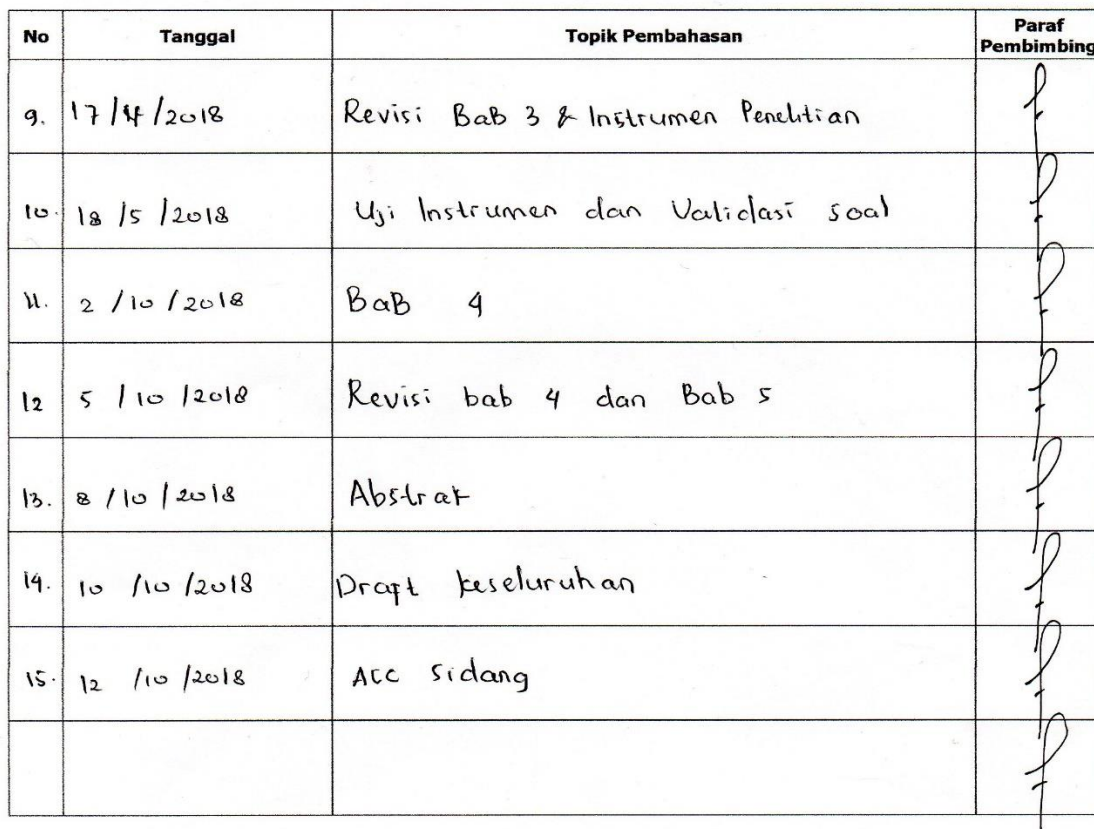 No Tanggal Topik Pembahasan Paraf
Pembimbing
9. 17/4/2018 Revisi BaB 3 & Instrumen Penelitian
10. 18/5/2018 Uji Instrumen dan Validasi soal
11. 2/10/2018 BaB 4
12 5/10/2018 Revisi bab 4 dan Bab 5
13. 8/10/2018 Abstrak
14. 10/10/2018 Draft keseluruhan
15. 12/10/2018 ACC Sidang